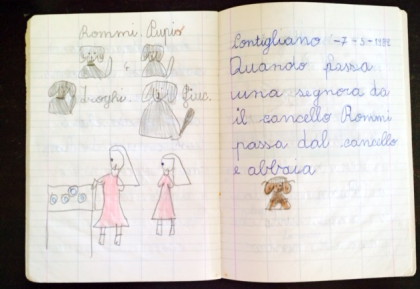 Rommi. Pupis
e
Droghi. Giuc.
Contigliano - 7 - 5 - 1986
Quando passa
una segnora da
il cancello Rommi
passa dal cancello
e abbaia